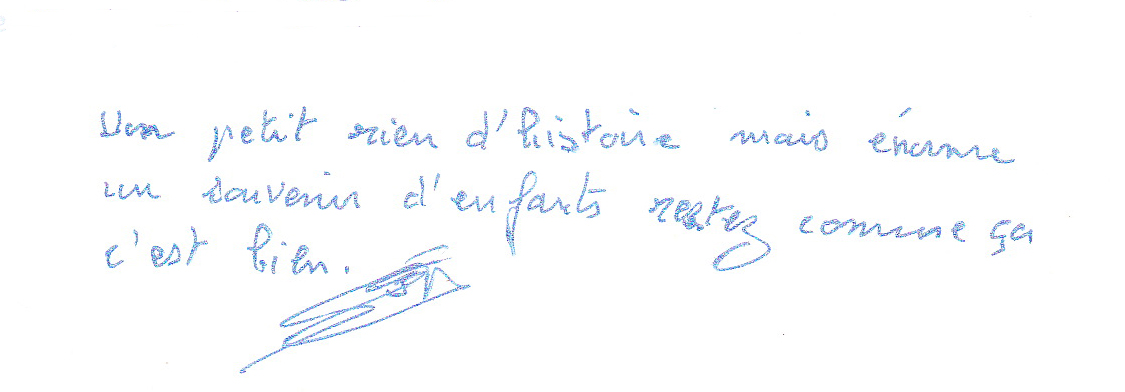 Un petit rien d'histoire mais énorme
un souvenir d'enfants restez comme ça
c'est bien.